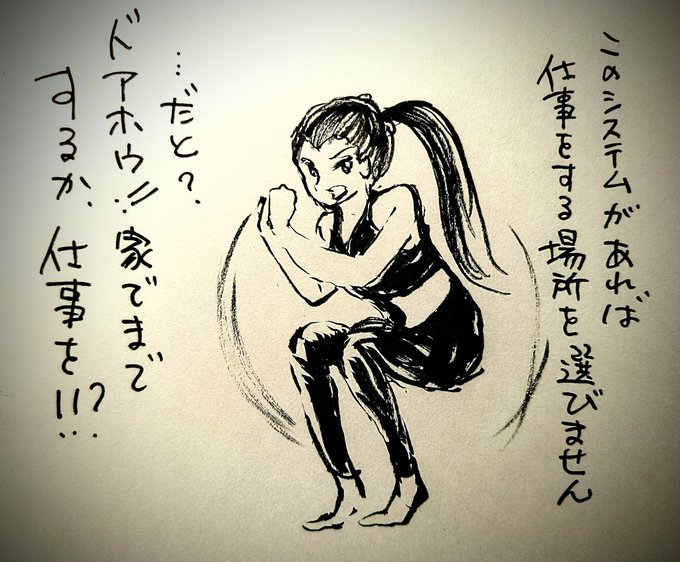 このシステムがあれば
仕事をする場所を選びません
…だと?
ドアホウ!! 家でまで
するか、仕事を!!?